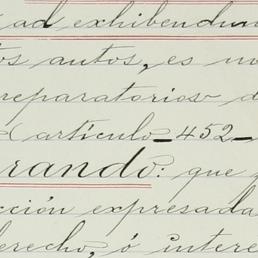 ad exhibendum
os autos, es
reparatorios d
(artículo 452
rando: que
cción expresada
derecho, ó intere